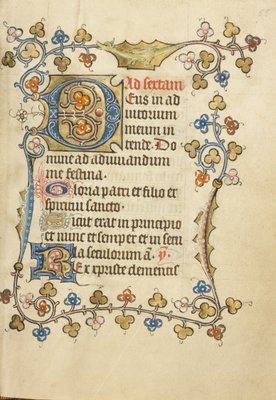 Ad sextam
Deus in ad
iutorium
meum in
tende. Do
mine ad adiuuandum
me festina.
Gloria patri et filio et
spiritui sancto.
Sicut erat in principio
et nunc et semper et in secu
la seculorum a. p.
Rex xpriste clementis